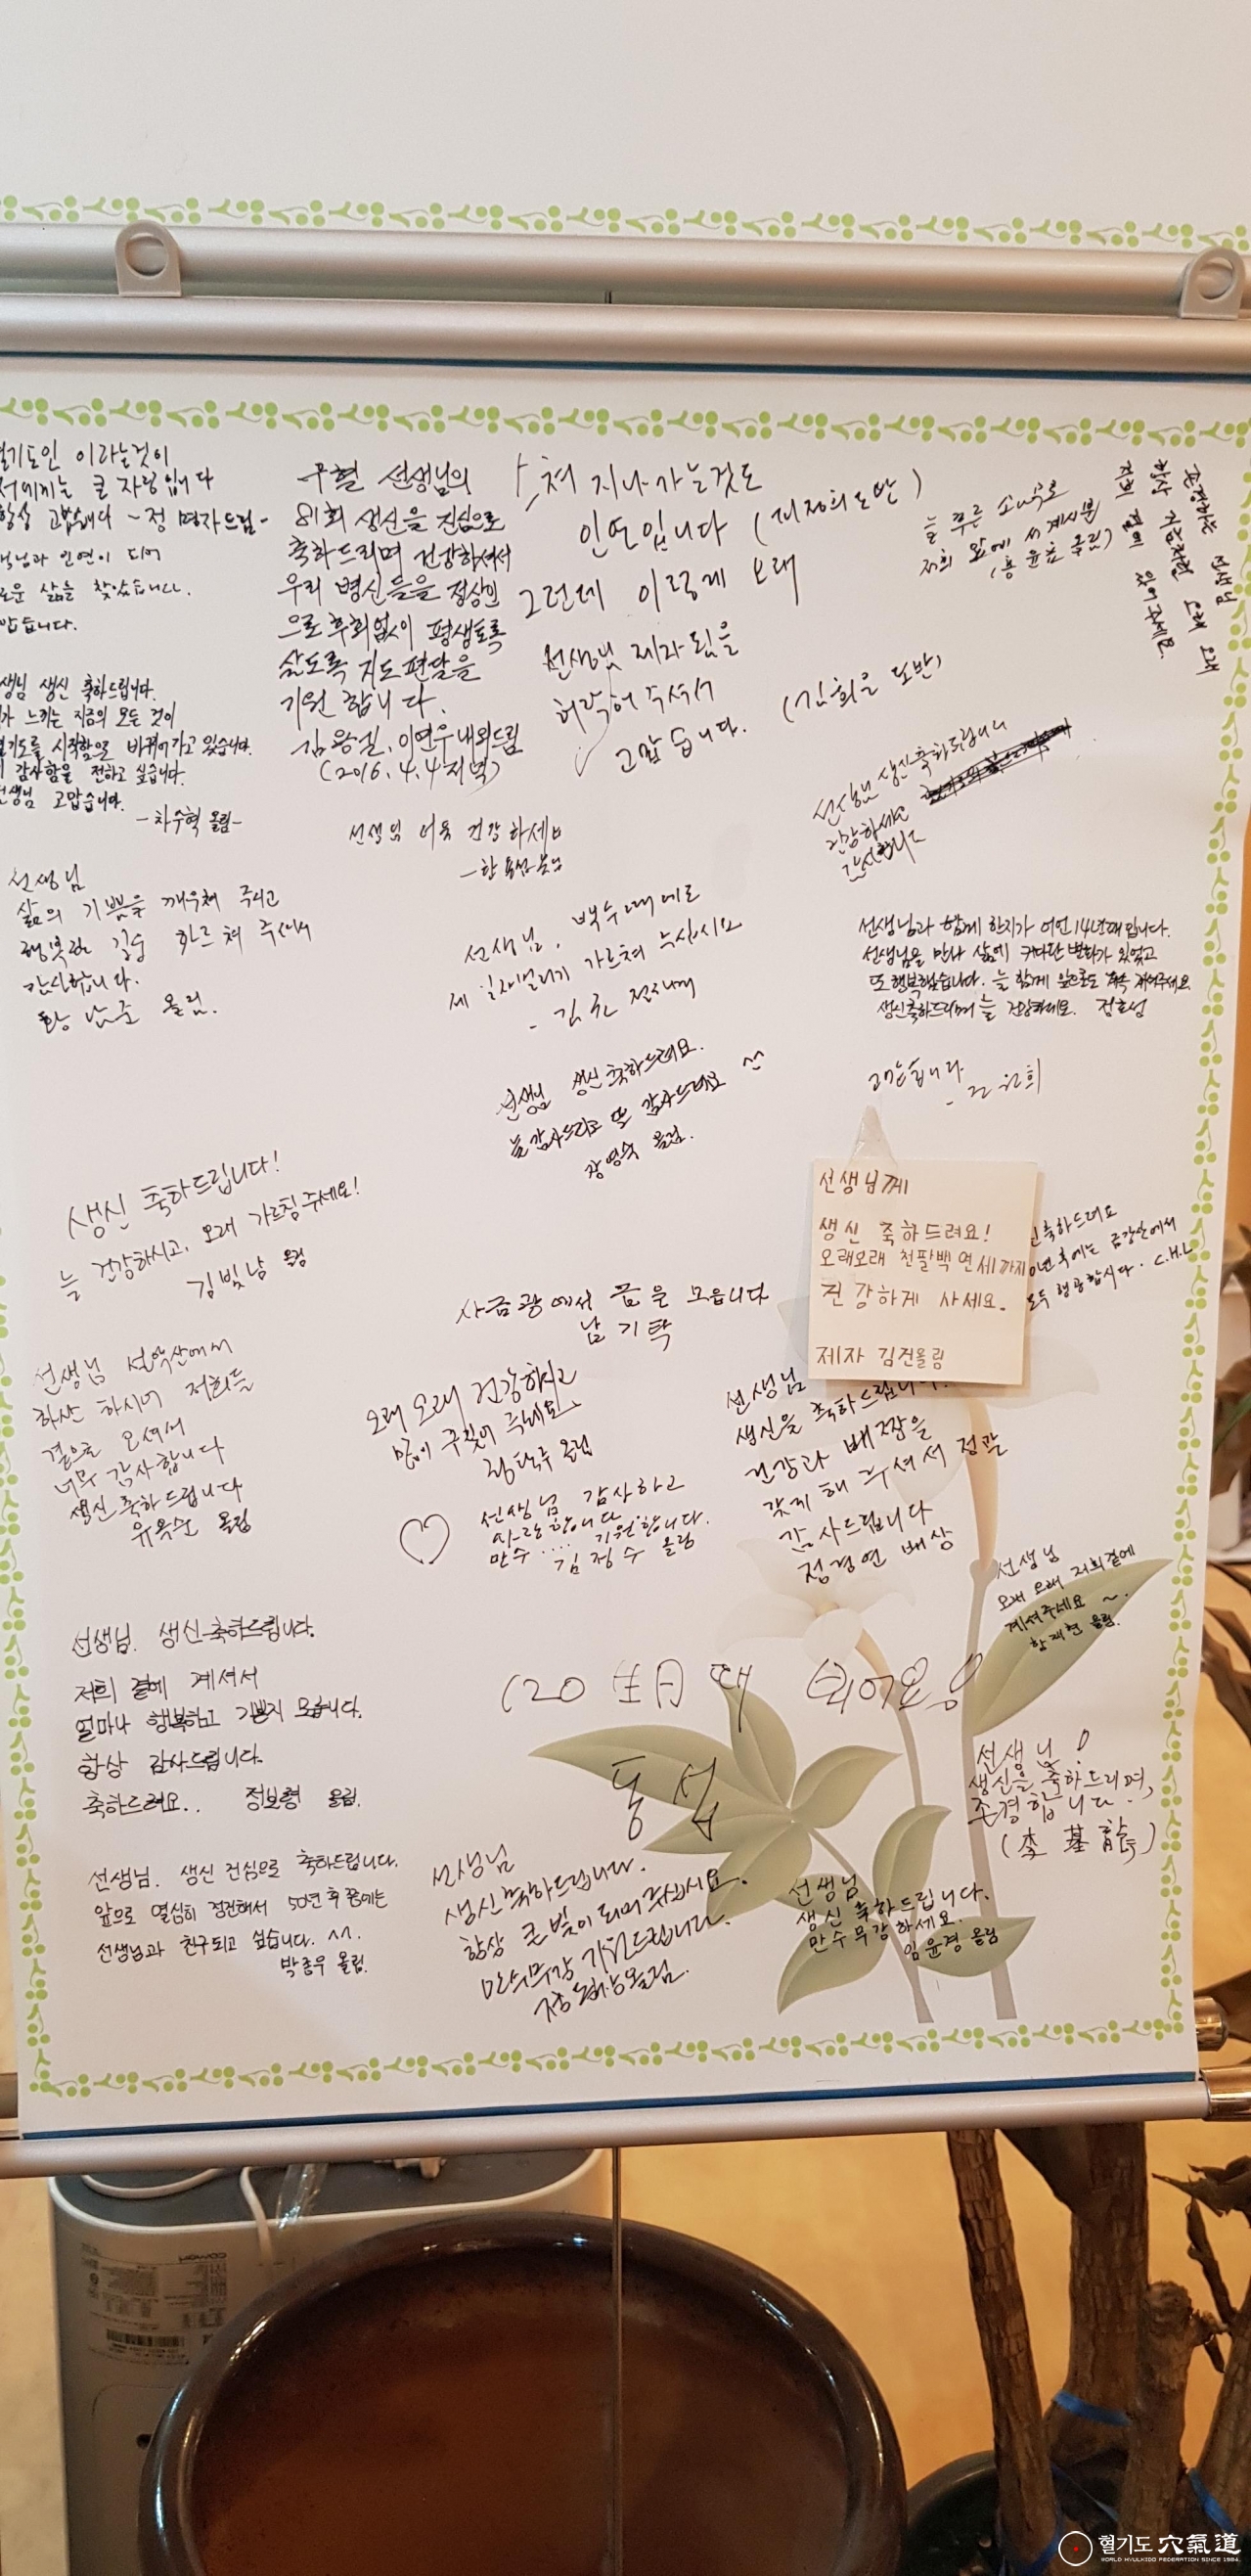 이라는것이
큰 자랑입니다
항상 고맙습니다 -정 명자드림-
인연이 되어
삶을 찾았습니다.
생신 축하드립니다.
느끼는 지금의 모든 것이
시작함으로 바뀌어가고 있습니다.
감사함을 전하고 싶습니다.
고맙습니다.
-차수혁 올림-
선생님
삶의 기쁨을 깨우쳐 주시고
행복한 길을 가르쳐 주셔서
감사합니다.
황 남준 올림.
생신 축하드립니다!
늘 건강하시고, 오래 가르침 주세요!
김빛남 올림
선생님 설악산에서
하산 하시어 저희들
곁으로 오셔서
너무 감사합니다
생신 축하드립니다
유옥순 올림
선생님. 생신 축하드립니다.
저희 곁에 계셔서
얼마나 행복하고 기쁜지 모릅니다.
항상 감사드립니다.
축하드려요.. 정보령 올림.
선생님. 생신 진심으로 축하드립니다.
앞으로 열심히 정진해서 50년 후 쯤에는
선생님과 친구되고 싶습니다. ^^.
박종우 올림.
우혈 선생님의
81회 생신을 진심으로
축하드리며 건강하셔서
우리 병신들을 정상인
으로 후회없이 평생토록
살도록 지도편달을
기원 합니다.
김왕신, 이연우 내외드림
(2016. 4. 4 저녁)
스쳐 지나가는것도
인연입니다
그런데 이렇게 오래
선생님 제자됨을
허락해 주셔서
고맙습니다.
(김희은 도반)
늘 푸른 소나무로
저희 앞에 서 계시분
선생님 더욱 건강하세요
선생님 생신축하드립니다
건강하세요
감사합니다
선생님, 백수때에도
가르쳐 주십시요
선생님 생신 축하드려요.
늘 감사드리고 또 감사드려요 ^^
장영숙 올림.
선생님과 함께 한지가 어언 14년째입니다.
선생님을 만나 삶에 커다란 변화가 있었고
또 행복했습니다. 늘 함께 앞으로도 계속 계셔주세요
생신축하드리며 늘 건강하세요. 정효성
고맙습니다
선생님께
생신 축하드려요!
오래오래 천팔백 연세까지
건강하게 사세요.
제자 김건올림
축하드려요
후에는 금강산에서
모두 행공합시다. C.H.L
사금광에서 금을 모읍니다
남기탁
오래 오래 건강하시고
많이 꾸짖어 주세요.
선생님 감사하고
사랑합니다
만수.... 기원합니다.
김정수 올림
선생님
생신을 축하드립니다.
건강과 배짱을
갖게 해 주셔서 정말
감사드립니다
정경연 배상
선생님
오래 오래 저희곁에
계셔주세요 ~.
함재현 올림.
120 生日 때 뵈어요
동섭
선생님!
생신을 축하드리며,
존경합니다.
(李基龍)
선생님
생신 축하드립니다.
항상 큰 빛이 되어 주십시요.
만수무강 기원드립니다.
선생님
생신 축하드립니다.
만수무강 하세요.
임윤경 올림
COWAY
혈기도 穴氣道
WORLD HYULKIDO FEDERATION SINCE 1984.